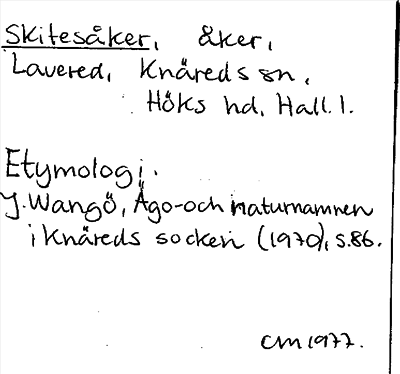 Skitesåker, åker,
Lavered, Knäreds sn,
Höks hd, Hall. l.
Etymologi.
J. Wangö, Ägo- och naturnamnen
i Knäreds socken (1970), s. 86.
CM 1977.